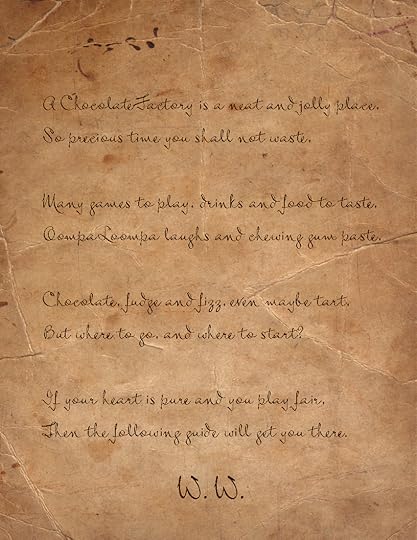 A Chocolate Factory is a neat and jolly place.
So precious time you shall not waste.
Many games to play, drinks and food to taste,
Oompa Loompa laughs and chewing gum paste.
Chocolate, fudge and fizz, even maybe tart,
But where to go, and where to start?
If your heart is pure and you play fair,
Then the following guide will get you there.
W. W.